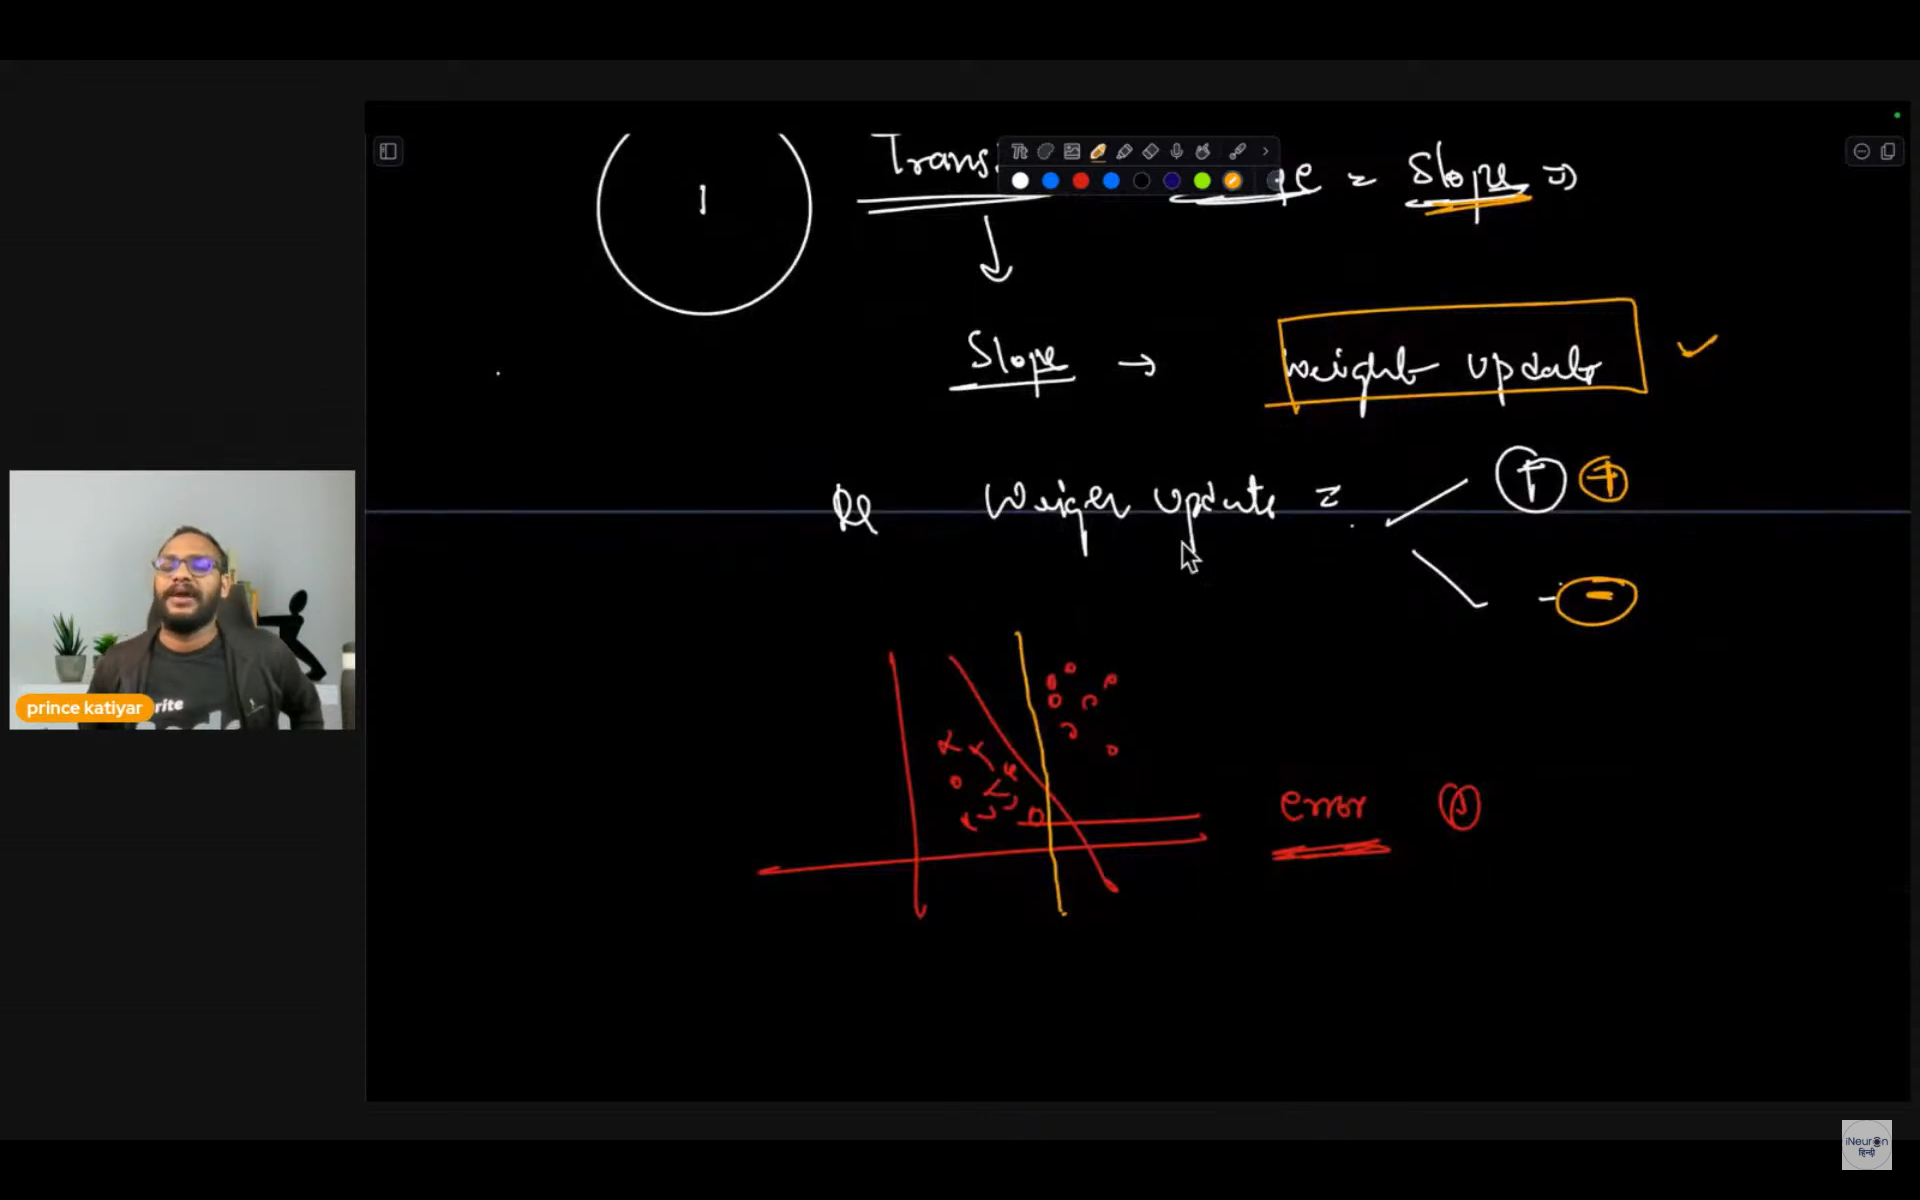 1
Trans
= Slope ⇒
Slope → weight update ✓
Weiger update = + +
-
error
prince katiyar
rite
iNeuron
हिन्दी